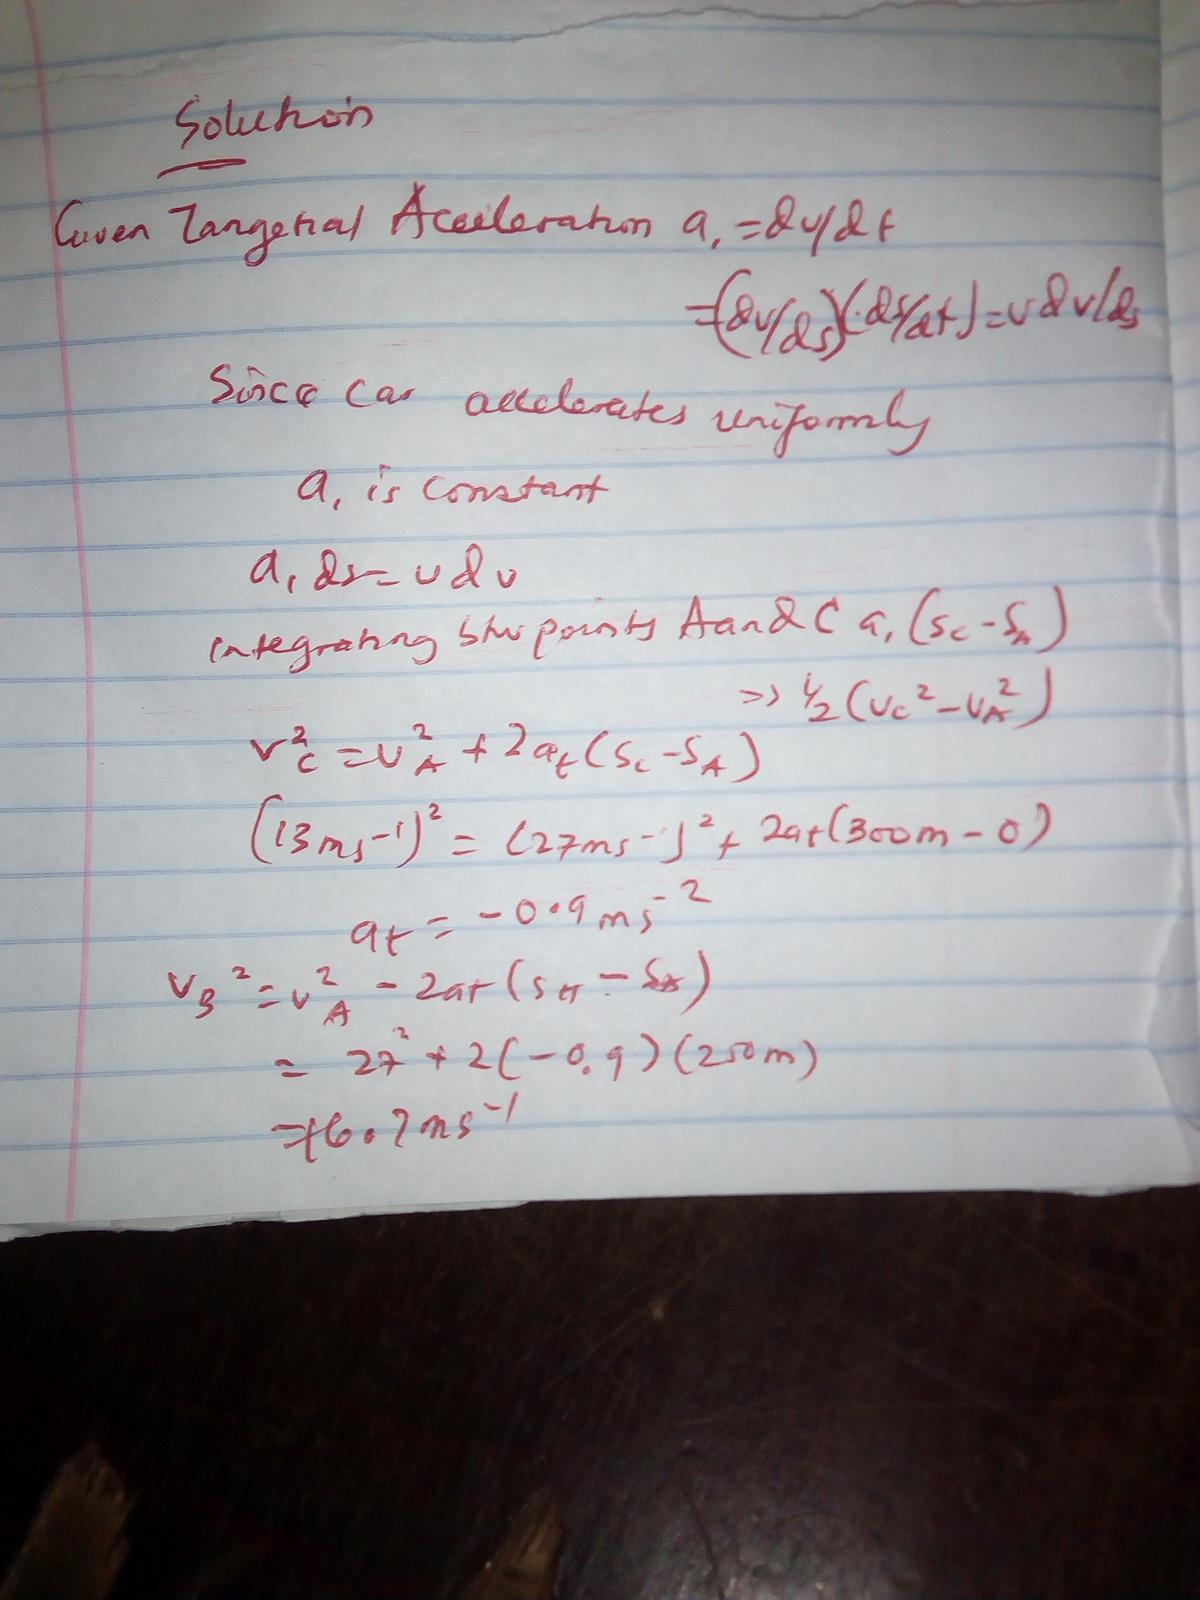 Solution
Given Tangetial Acceleration a, = dv/dt
=(dv/ds)(ds/dt) = vdv/ds
Since Car accelerates uniformly
a, is constant
a, ds = v dv
integrating btw points A and C a, (sc - sA)
=> 1/2 (vc² - vA²)
v²C = v²A + 2at (Sc - SA)
(13 ms-1)² = (27ms-1)² + 2at (300m - 0)
at = -0.9 ms-2
VB² = v²A - 2at (
= 27² + 2(-0.9)(250m)
=16.7ms-1